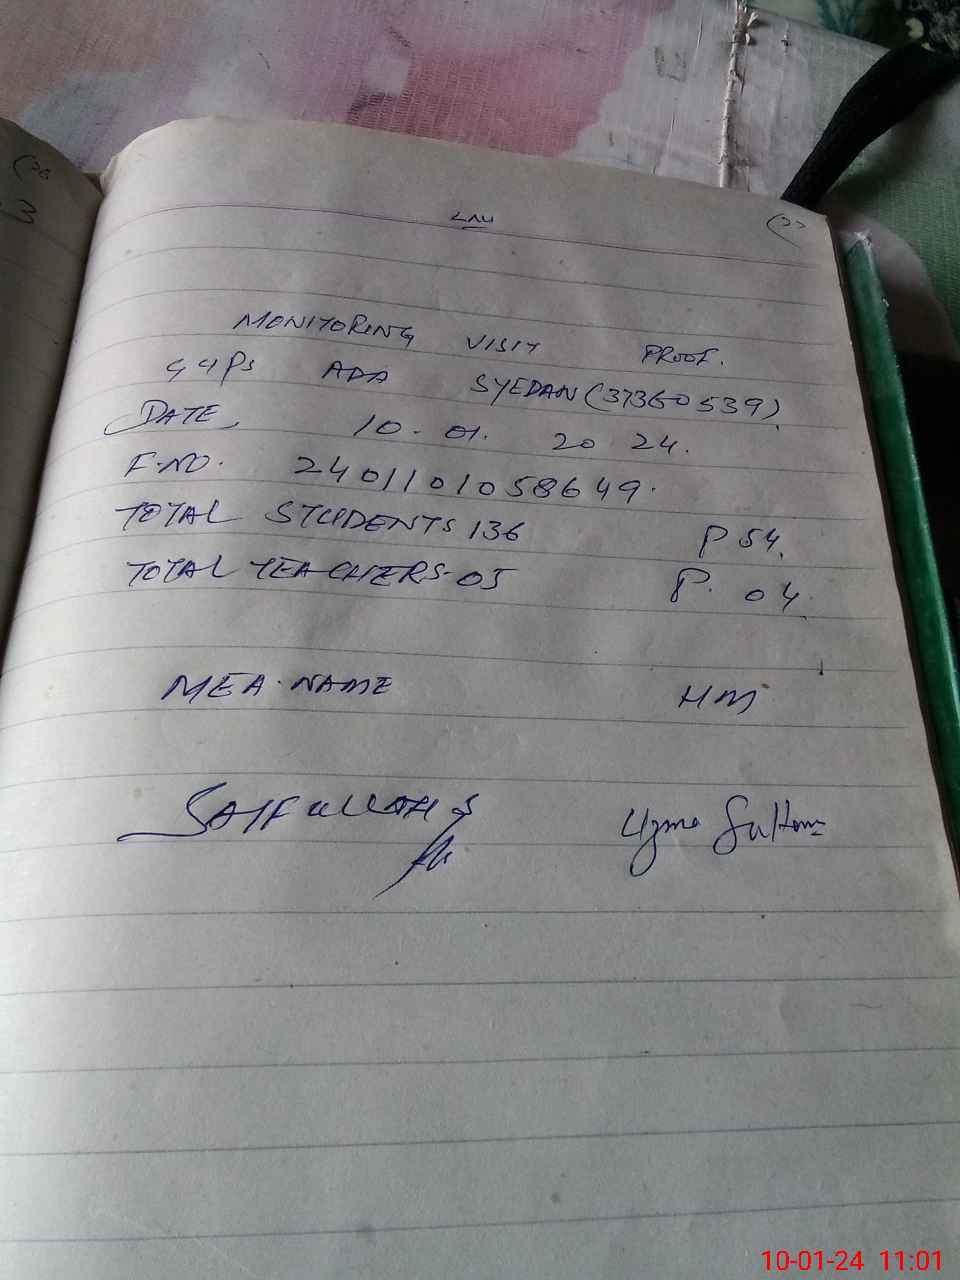 (37
MONITORING VISIT PROOF.
GGPS ADA SYEDAN (37360539).
DATE, 10.01.2024.
F.NO. 2401101058649.
TOTAL STUDENTS 136 P 54.
TOTAL TEACHERS-05 P. 04.
MEA.NAME HM
SAIFULLAH Uzma Sultana
10-01-24 11:01